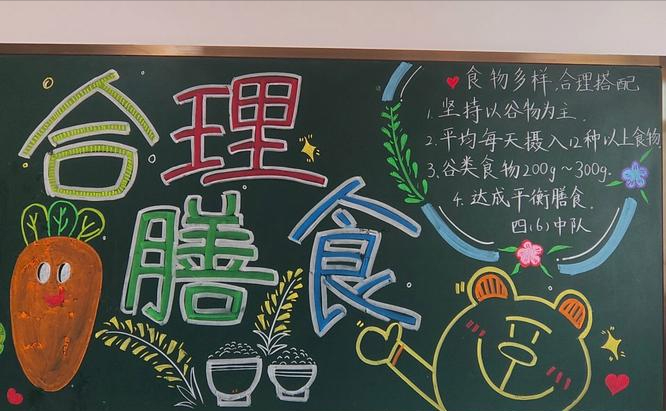 合理
膳食
食物多样,合理搭配
1.坚持以谷物为主.
2.平均每天摄入12种以上食物
3.谷类食物200g~300g.
4.达成平衡膳食.
四(6)中队